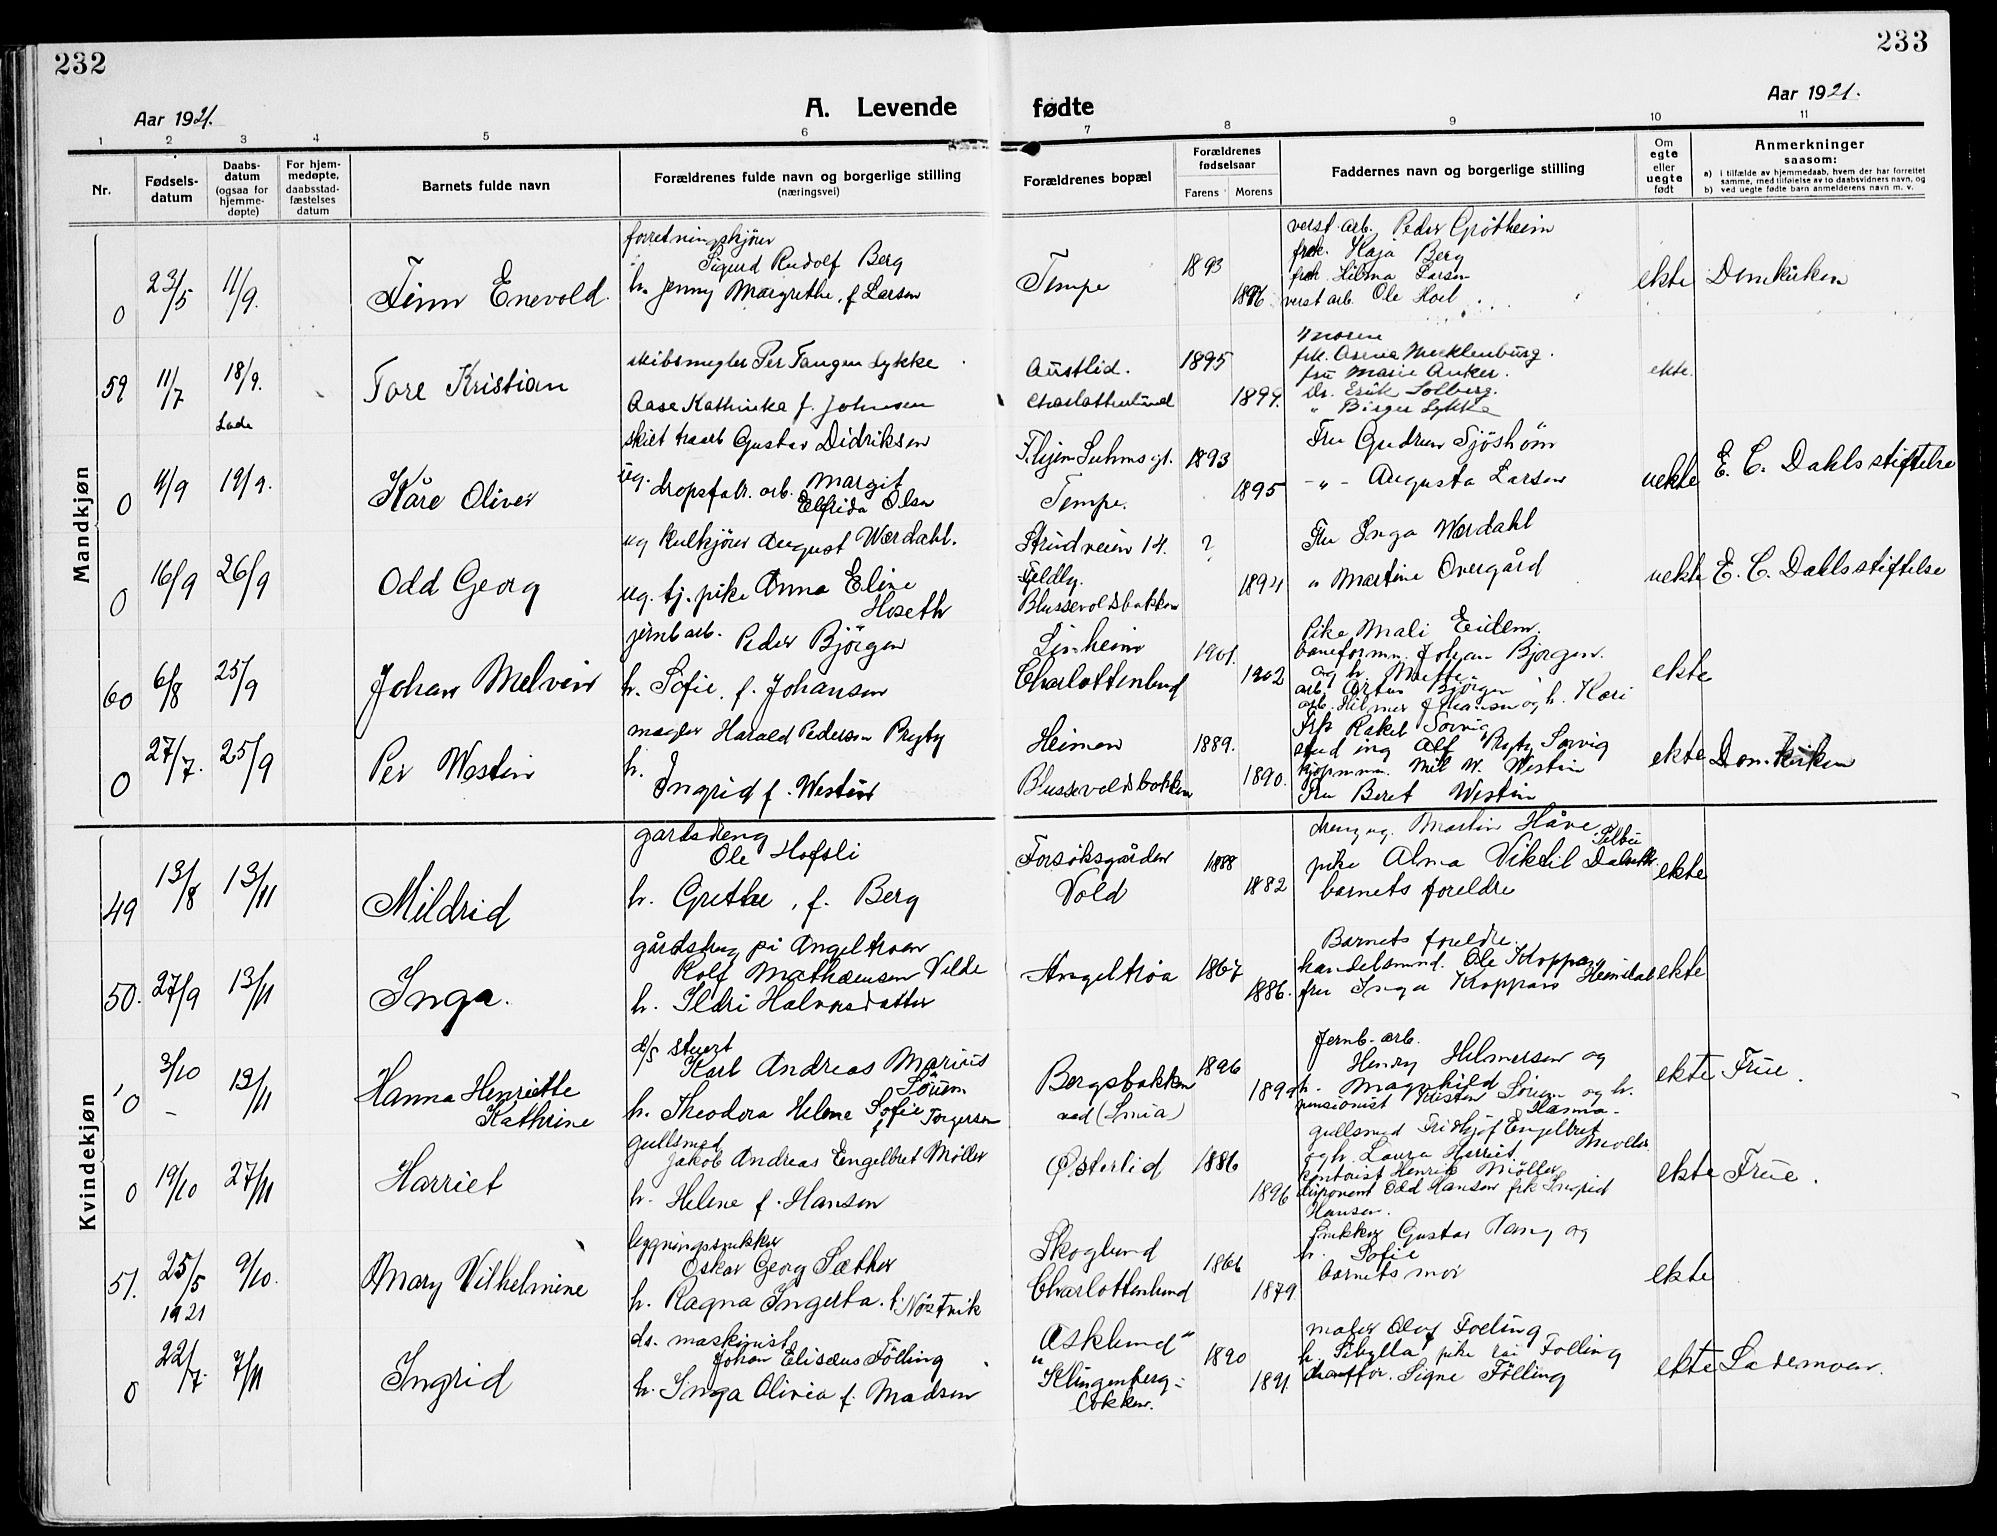 232
233
Aar 1921.
A. Levende fødte
Aar 1921.
1 2 3 4 5 6 7 8 9 10 11
Nr.
Fødsels-
datum
Daabs-
datum
(ogsaa for
hjemme-
døpte)
For hjem-
medøpte,
daabsstad-
fæstelses
datum
Barnets fulde navn
Forældrenes fulde navn og borgerlige stilling
(næringsvei)
Forældrenes bopæl
Forældrenes
fødselsaar
Farens Morens
Faddernes navn og borgerlige stilling
Om
egte
eller
uegte
født
Anmerkninger
saasom:
a) i tilfælde av hjemmedaab, hvem der har forrettet
samme, med tilføielse av to daabsvidners navn, og
b) ved uegte fødte barn anmelderens navn m. v.
Mandkjøn
0 23/5 11/9. Finn Enevold.
forretningskjører
Sigurd Rudolf Berg
h. Jenny Margrethe, f. Larsen
Tempe
1893
1896
verst. arb. Peder Grøtheim
frk. Kaja Berg
frk. Hilma Larsen
verst arb. Ole Hoel
ekte Domkirken
59 11/7 18/9. Lade
Tore Kristian
skibsmegler Per Tangen Lykke
Aase Kathinka f. Johnsen
Austlid.
Charlottenlund
1895
1899.
moren
frk. Mecklenburg.
fru Marie Anker.
Dr. Erik Solberg.
" Birger Lykke
ekte.
0 4/9 19/9. Kåre Oliver
Gustav Didriksen
ug. dropsfabr. arb. Margit
Elfrida Olsen
Suhmsgt.
Tempe.
1893
1895
Fru Gudrun
- " - Augusta Larsen
uekte E. C. Dahls stiftelse
0 16/9 26/9 Odd Georg
ug kulkjører August Wærdahl.
ug. tj. pike Anna Eline
Hoseth
14.
Feldly.
Blussevoldsbakken
?
1894
Fru Inga Wærdahl
" Martine Overgård
uekte E. C. Dahls stiftelse
60 6/8 25/9 Johan Melvin
jernb arb. Peder Bjørgen
h. Sofie, f. Johansen
Charlottenlund
1901.
1902
Pike Mali Eidem.
baneformn. Johan Bjørgen.
og h. Mette
arb. Bjørgen og h. Kari
ekte
0 27/7. 25/9 Per Westin
megler Harald Pedersen Prytz
h.
Ingrid f. Westin
Heimen
Blussevoldsbakken
1889.
1890.
Rakel Sørvig
stud ing Alf Prytz Sørvig
kjøpmnn. W. Westin
Fru Beret Westin
ekte Domkirken
Kvindekjøn
49 13/8 13/11 Mildrid
gårdsdreng
Ole Hofsli
h. Grethe, f. Berg
Forsøksgården
Vold
1888
1882
dreng ug. Martin Håve, Selbu
pike Alma Viktil
barnets foreldre
ekte
50. 27/9 13/11 Inga.
gårdsbrug på Angeltroen
Rolf Mathæusen Vilde
h. Ildri Halvorsdatter
Angeltrøa
1867
1886.
Barnets foreldre.
handelsmnd. Ole Kroppan
fru Inga Kroppan Heimdal
ekte
0 3/10 13/11
Hanna Henriette
Kathrine
d/s stuert
Karl Andreas Marius
Sørum
h. Theodora Helene Sofie f. Torgersen
Bergsbakken
ved (Smia)
1896
1899
Jernb. arb.
Henry Hilmersen og
h. Magnhild
pensionist Kristen Sørum og h.
Hanna
ekte Frue.
0 19/10 27/11 Harriet
gullsmed
Jakob Andreas Engelbret Møller
h. Helene f. Hansen
Østerlid
1886
1896
gullsmed Fridtjof Engelbret Møller
og h. Laura Harriet.
kontorist Henrik Møller
disponent Odd Hansen frk Ingrid
Hansen.
ekte Frue.
51. 25/5 1921 9/10. Mary Vilhelmine
bygningssnekker
Oskar Georg Sæther
h. Ragna Ingerta. f. Nöstvik
Skoglund
Charlottenlund
1866
1879
snekker Gustav Hang og
h. Sofie
barnets mor
ekte
0 22/7. 7/11 Ingrid
ds. maskinist
Johan Elisæus Fölling
h. Inga Olivia f. Madsen
"Asklund"
Klingenberg-
løkken.
1890
1891.
maler Olaf Folling
h. Sibylla pike Folling
Signe Fölling
ekte Lademoen.